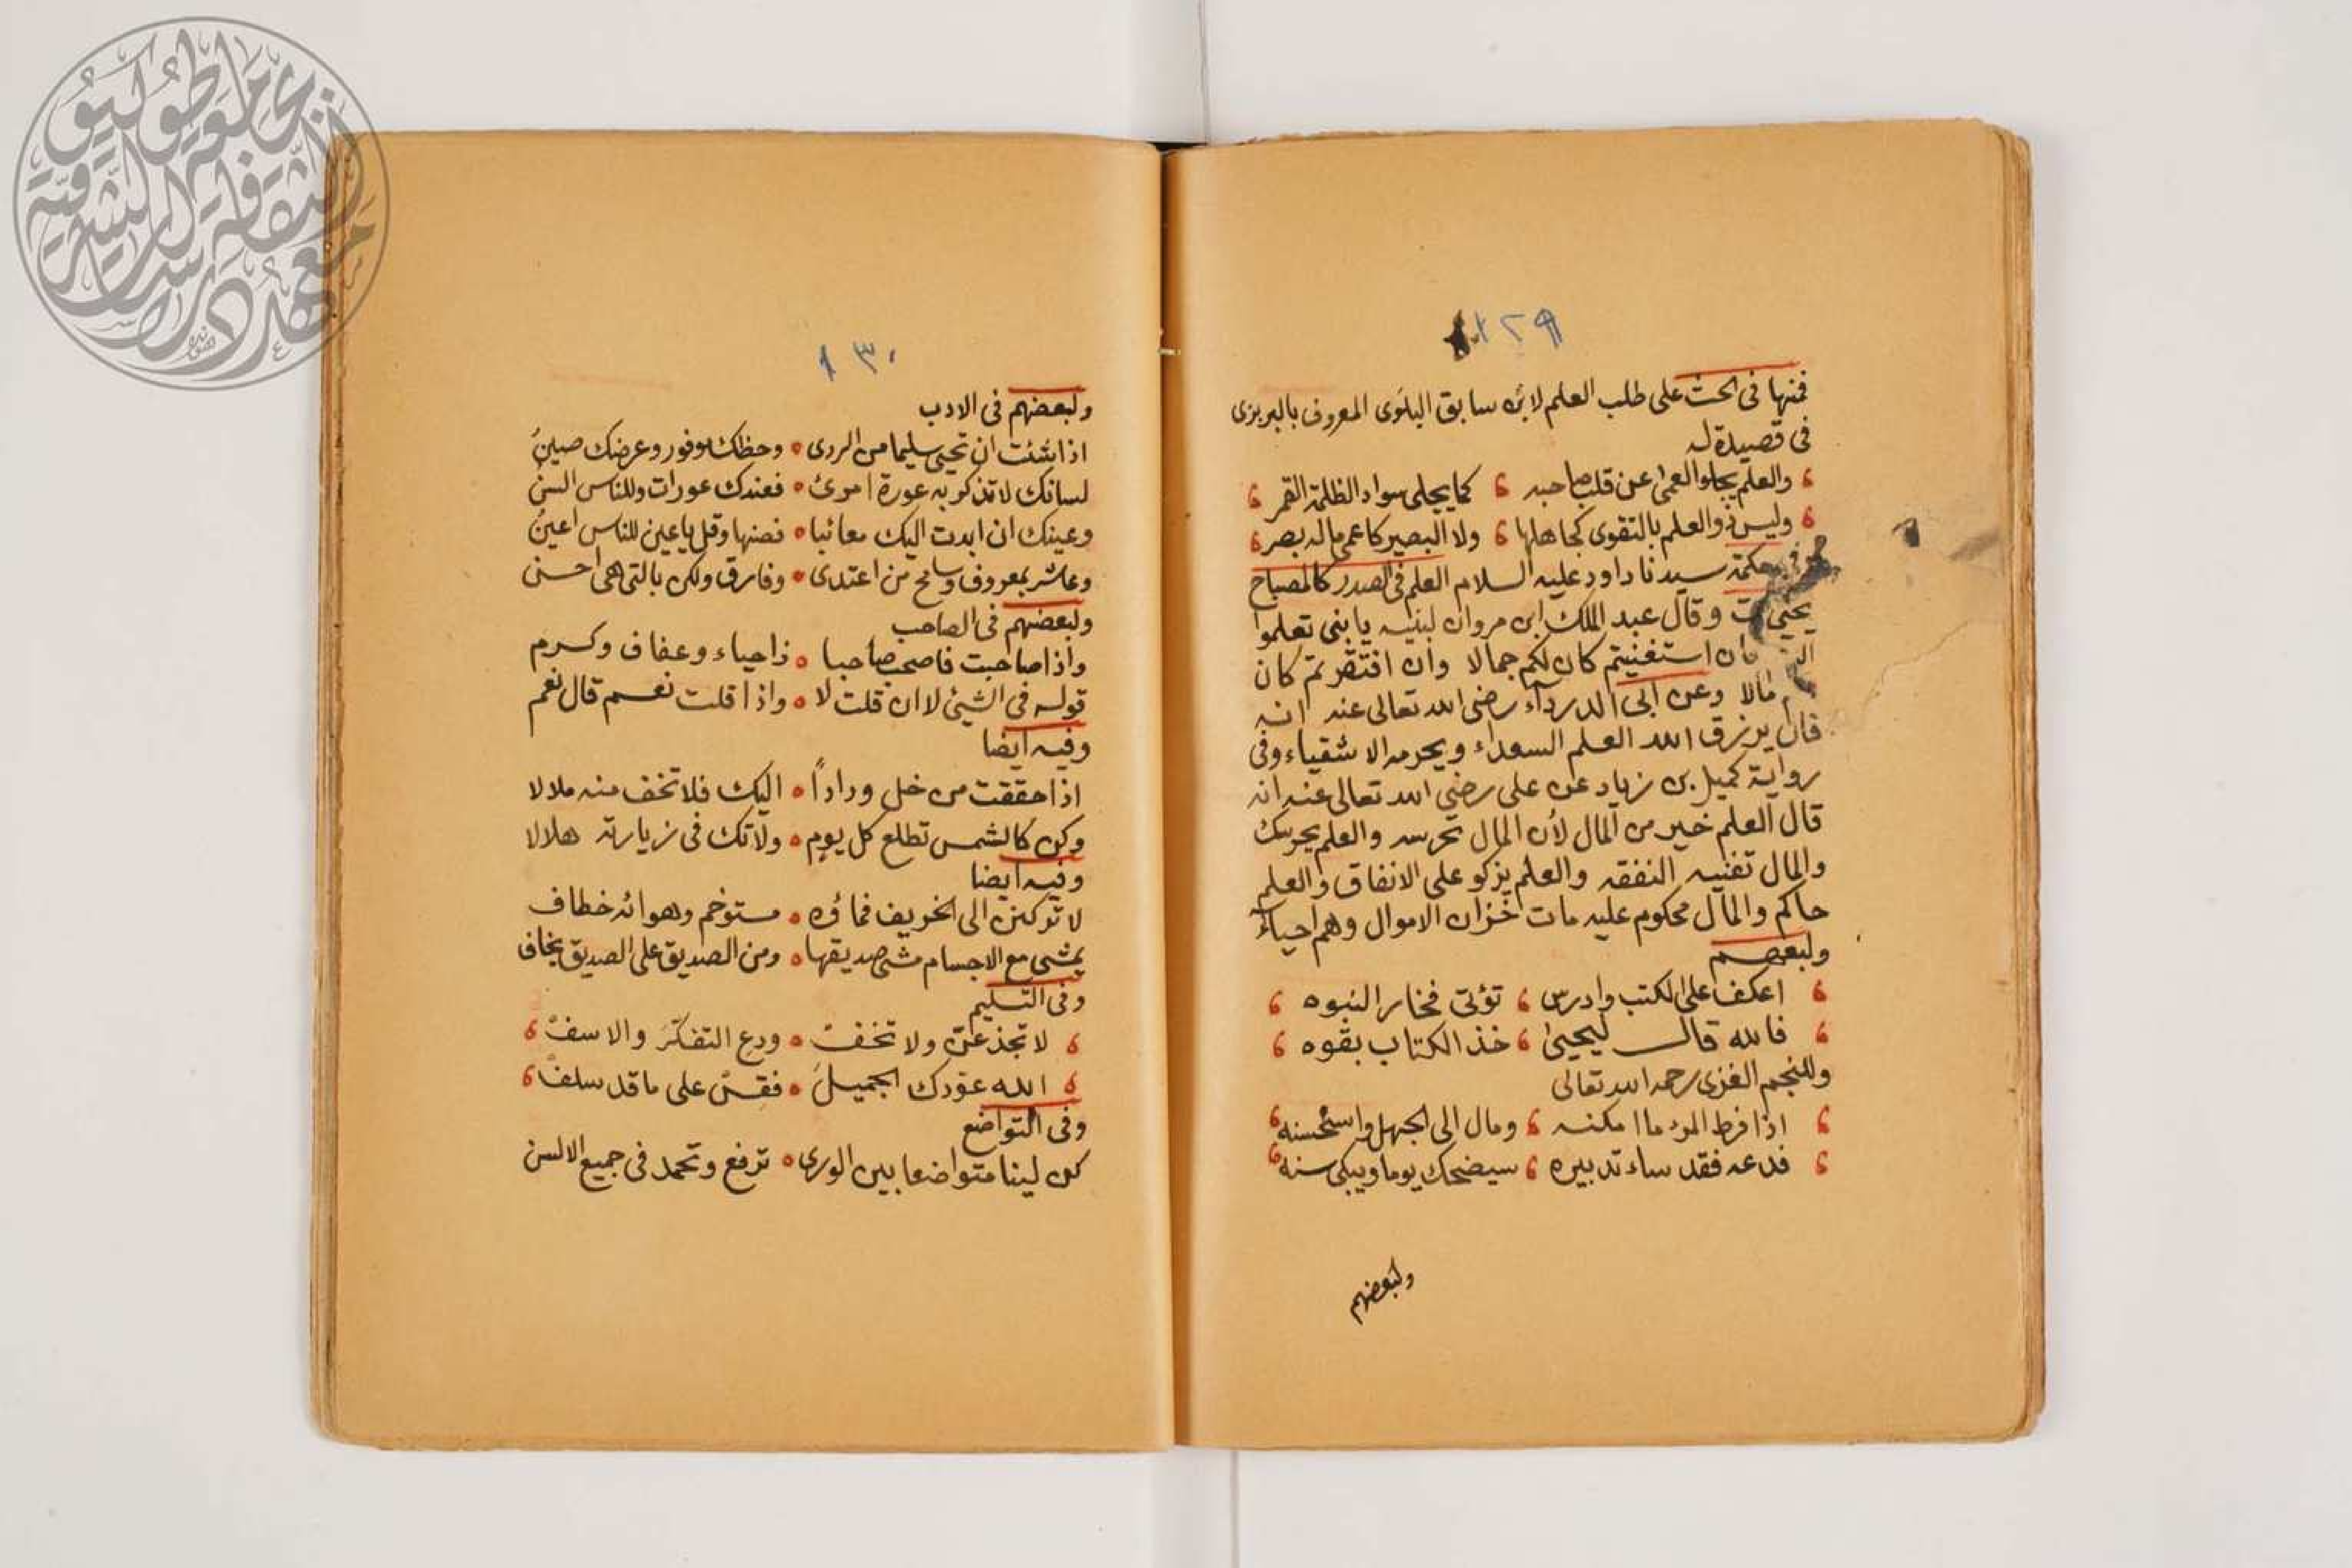 ١٢٩
فمنها فى الحث على طلب العلم لابن سابق البلوى المعروف بالبربرى
فى قصيدة له
والعلم يجلو العمى عن قلب صاحبه كما يجلى سواد الظلمة القمر
وليس ذو العلم بالتقوى كجاهلها ولا البصير كاعمى ماله بصر
حكمة سيدنا داود عليه السلام العلم فى الصدر كالمصباح
وقال عبد الملك ابن مروان لبنيه يا بنى تعلموا
استغنيتم كان لكم جمالا وان افتقرتم كان
مالا وعن ابى الدرداء رضى الله تعالى عنه انه
قال يرزق الله العلم السعداء ويحرمه الاشقياء وفى
رواية كميل بن زياد عن على رضى الله تعالى عنه انه
قال العلم خير من المال لأن المال تحرسه والعلم يحرسك
والمال تفنيه النفقه والعلم يزكو على الانفاق والعلم
حاكم والمال محكوم عليه مات خزان الاموال وهم احياء
ولبعضهم
اعكف على الكتب وادرس تؤتى فخار النبوه
فالله قال ليحيى خذ الكتاب بقوه
وللنجم الغزى رحمه الله تعالى
اذا فرط المرء ما امكنه ومال الى الجهل واستحسنه
فدعه فقد ساء تدبيره سيضحك يوما ويبكى سنه
ولبعضهم
١٣٠
ولبعضهم فى الادب
اذا شئت ان تحيى سليما من الردى وحظك موفور وعرضك صينُ
لسانك لا تذكر به عورة امرئ فعندك عورات وللناس السنُ
وعينك ان ابدت اليك معائبا فصنها وقل يا عين للناس اعينُ
وعاشر بمعروف وسامح من اعتدى وفارق ولكن بالتى هى احسن
ولبعضهم فى الصاحب
واذا صاحبت فاصحب صاحبا ذا حياء وعفاف وكرم
قوله فى الشيئ لا ان قلت لا واذا قلت نعم قال نعم
وفيه ايضا
اذا حققت من خل وداداً اليك فلا تخف منه ملالا
وكن كالشمس تطلع كل يوم ولا تك فى زيارته هلالا
وفيه ايضا
لا تركنن الى الخريف فماؤه مستوخم وهوائه خطاف
يمشى مع الاجسام مشى صديقها ومن الصديق على الصديق يخاف
وفى التسليم
لا تجذعنّ ولا تخفْ ودع التفكّرَ والاسفْ
الله عوّدك الجميلَ فقِسْ على ما قد سلفْ
وفى التواضع
كن لينا متواضعا بين الورى ترفع وتحمد فى جميع الالسن